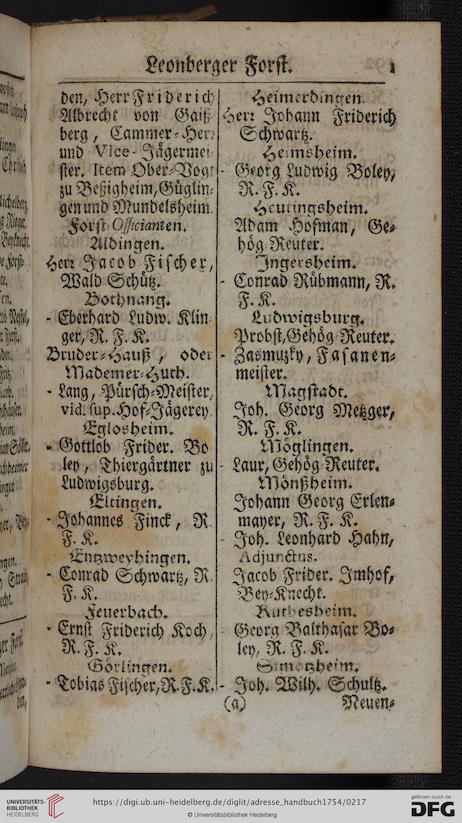 Leonberger Forst.
den, Herr Friderich
Albrecht von Gaiß-
berg, Cammer-Herr
und Vice-Jägermei-
ster, Item Ober-Vogt
zu Beßigheim, Güglin-
gen und Mundelsheim.
Forst-Officianten.
Aldingen.
Herr Jacob Fischer,
Wald-Schütz.
Bothnang.
- Eberhard Ludw. Klin
ger, R. F. K.
Bruder-Hauß, oder
Mademer-Huth.
- Lang, Pürsch-Meister,
vid. sup. Hof-Jägerey.
Eglosheim.
- Gottlob Frider. Bo
ley, Thiergärtner zu
Ludwigsburg.
Eltingen.
- Johannes Finck, R
F. K.
Entzweyhingen.
- Conrad Schwartz, R.
F. K.
Feuerbach.
- Ernst Friderich Koch,
R. F. K.
Görlingen.
- Tobias Fischer, R. F. K.
Heimerdingen.
Herr Johann Friderich
Schwartz.
Heimsheim.
- Georg Ludwig Boley,
R. F. K.
Heutingsheim.
Adam Hofman, Ge-
hög-Reuter.
Ingersheim.
- Conrad Rübmann, R.
F. K.
Ludwigsburg.
Probst, Gehög-Reuter.
- Zasmuzky, Fasanen-
meister.
Magstadt.
Joh. Georg Metzger,
R. F. K.
Möglingen.
- Laur, Gehög-Reuter.
Mönßheim.
Johann Georg Erlen-
mayer, R. F. K.
- Joh. Leonhard Hahn,
Adjunctus.
Jacob Frider. Imhof,
Bey-Knecht.
Ruthesheim.
Georg Balthasar Bo-
ley, R. F. K.
- Joh. Wilh. Schultz.
(a) Neuen-
UNIVERSITÄTS-
BIBLIOTHEK
HEIDELBERG
https://digi.ub.uni-heidelberg.de/diglit/adresse_handbuch1754/0217
© Universitätsbibliothek Heidelberg
gefördert durch die
DFG